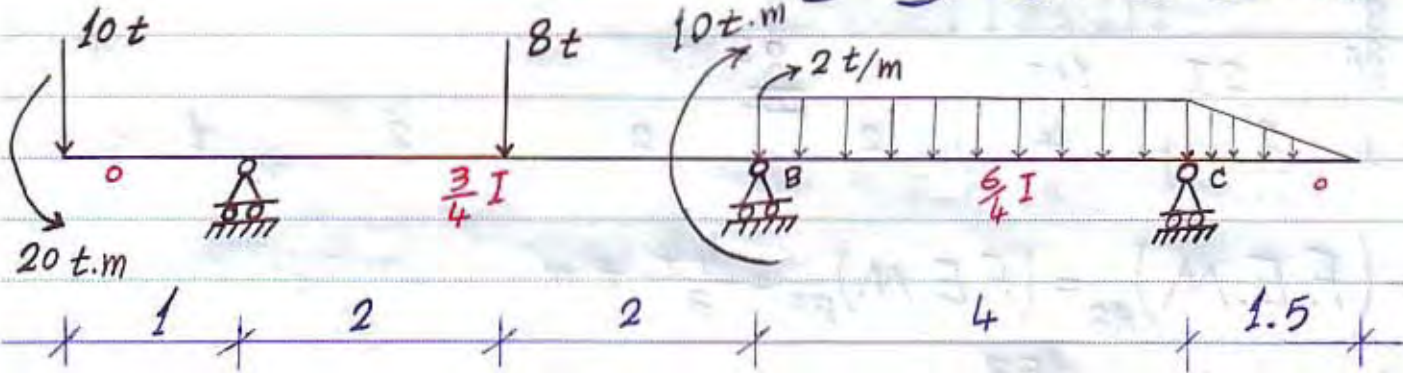 10 t
8 t
10 t.m
2 t/m
0
3/4 I
B
6/4 I
C
0
20 t.m
1
2
2
4
1.5